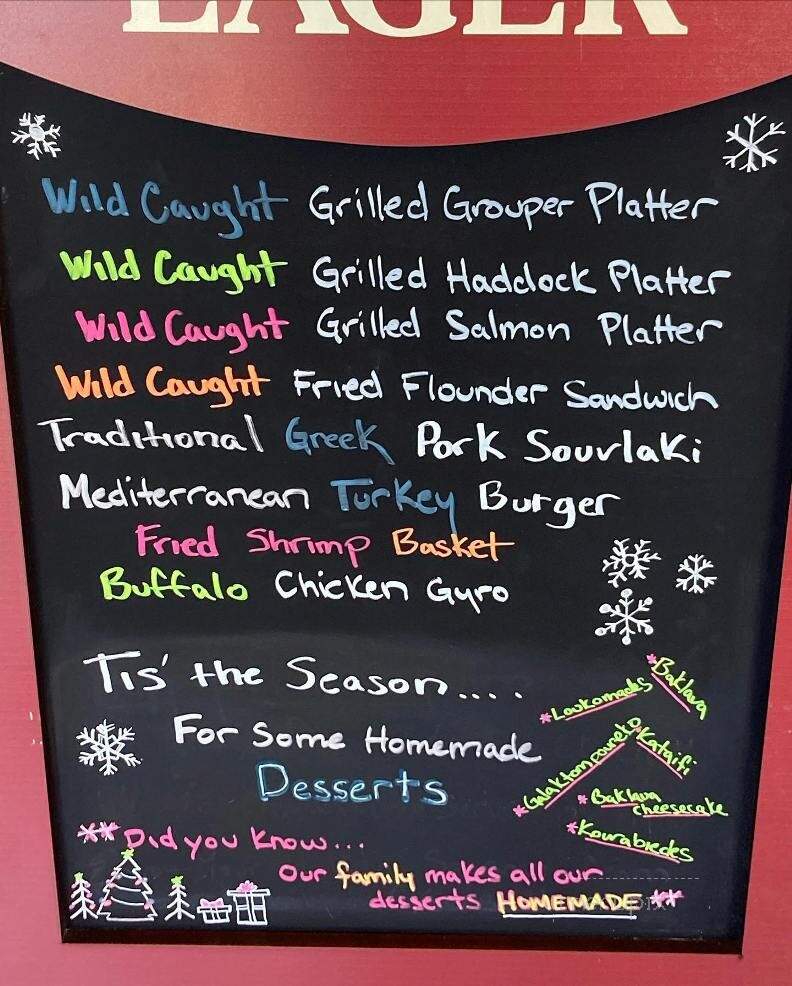 LAGER
Wild Caught Grilled Grouper Platter
Wild Caught Grilled Haddock Platter
Wild Caught Grilled Salmon Platter
Wild Caught Fried Flounder Sandwich
Traditional Greek Pork Souvlaki
Mediterranean Turkey Burger
Fried Shrimp Basket
Buffalo Chicken Gyro
Tis' the Season....
For Some Homemade
Desserts
*Baklava
*Loukomades
*Galaktompoureko
*Kataifi
*Baklava
cheesecake
*Kourabiedes
**Did you know...
Our family makes all our
desserts HOMEMADE **